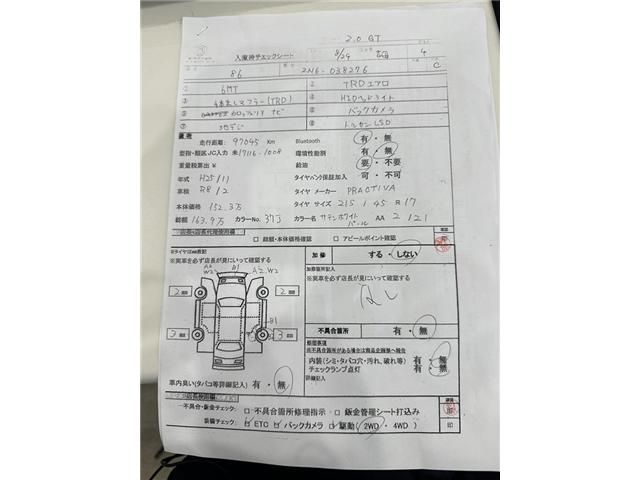 2.0 GT
入庫時チェックシート 8/29 4
86 ZN6-038276 C
① 6MT ④ TRDエアロ
4本出しマフラー(TRD) HIDヘッドライト
カロッツェリア ナビ バックカメラ
⑦ 地デジ トルセンLSD
走行距離: 97045 Km Bluetooth 有・無
型指・類区JC入力 未17116-1008 環境性能割 有・無
重量税算出 ¥ 給油 要・不要
年式 H25/11 タイヤパンク保証加入 可・不可
車検 R8/2 タイヤ メーカー PRACTIVA
本体価格 152.3万 タイヤ サイズ 215 / 45 R 17
総額 163.9万 カラーNo. 37J カラー名 サテンホワイトパール AA 2 121
□ 総額・本体価格確認 □ アピールポイント確認 印
※タイヤは㎜表記 加修 する・しない
※実車を必ず店長が見にいって確認する 加修箇所記入
※実車を必ず店長が見にいって確認する
A2 W2 B1 A2. W2
2 ㎜ 2 ㎜
なし
B1
3 ㎜ 3 ㎜
不具合箇所 有・無
※不具合箇所がある場合は商品企画部へ報告
内装(シミ・タバコ穴・汚れ、破れ等) 有・無
チェックランプ点灯 有・無
車内臭い(タバコ等詳細記入) 有・無 詳細記入
不具合・鈑金チェック: □ 不具合箇所修理指示 □ 鈑金管理シート打込み
装備チェック: □ ETC □ バックカメラ □ 駆動(2WD・4WD) 印